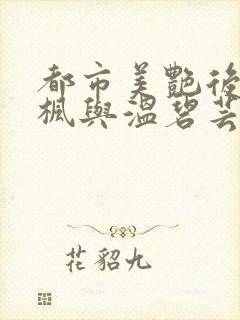 都市美艷後
楓與溫碧芸
花貂九